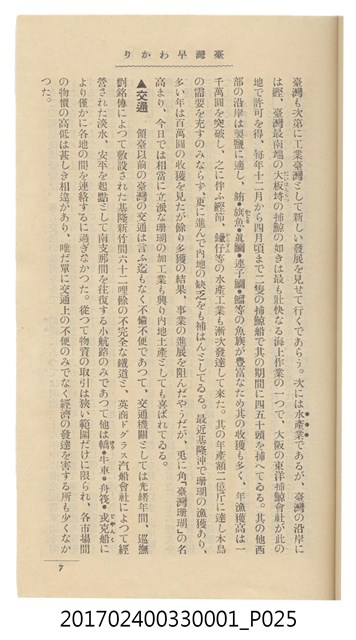 臺灣早わかり
臺灣も次第に工業臺灣として新しい發展を見せて行くであらう。次には水產業であるが、臺灣の沿岸に
は鰹、臺灣最南端の大板埒の捕鯨の如きは最も壯快なる海上作業の一つで、大阪の東洋捕鯨會社が此の
地で許可を得、每年十二月から四月頃まで二隻の捕鯨船で其の期間に四五十頭を捕へてゐる。其の他西
部の沿岸は製鹽に適し、鮪・旗魚・眞鯛・連子鯛・鰡等の魚族が豐富なため其の收獲も多く、年漁獲高は一
千萬圓を突破し、之に伴ふ鰹節、罐詰等の水產工業も漸次發達して來た。其の年產額二億斤に達し本島
の需要を充すのみならず、更に進んで內地の缺乏をも補はんとしてゐる。最近基隆沖で珊瑚の漁獲あり、
多い年は百萬圓の收獲を見たが餘り多獲の結果、事業の進展を阻んだやうだが、兎に角「臺灣珊瑚」の名
高まり、今日では相當に立派な珊瑚の加工業も興り內地土產としても喜ばれてゐる。
▲交通 領臺以前の臺灣の交通は言ふ迄もなく不備不便であつて、交通機關としては光緖年間、巡撫
劉銘傳によつて敷設された基隆新竹間六十二哩餘の不完全な鐵道と、英商ドグラス汽船會社によつて經
營された淡水、安平を起點として南支那間を往復する小航路のみであつて他は轎・牛車・舟筏・戎克船に
より僅かに各地の間を連絡するに過ぎなかつた。從つて物資の取引は狹い範圍だけに限られ、各市場間
の物價の高低は甚しき相違があり、唯だ單に交通上の不便のみでなく經濟の發達を害する所も少くなか
つた。
7
201702400330001_P025